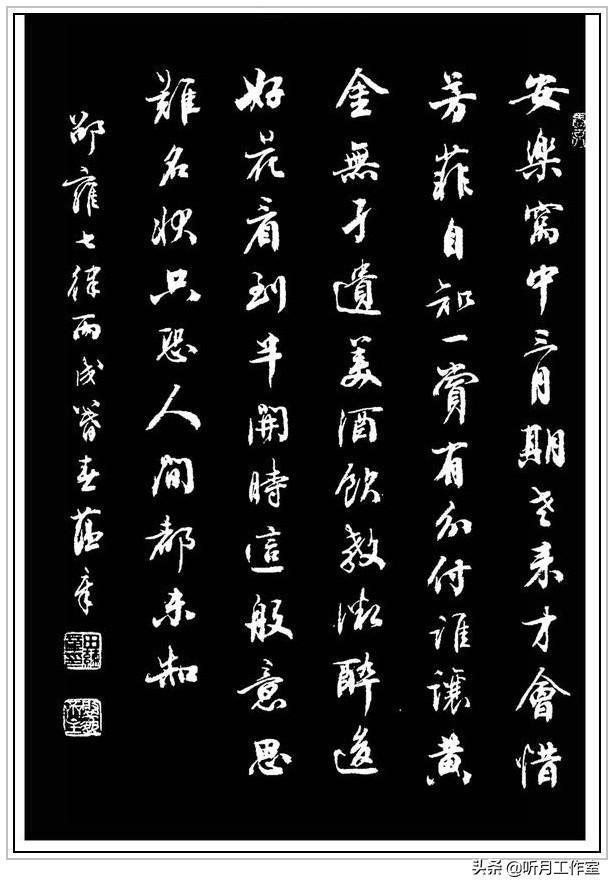 安樂窩中三月期老来才會惜
芳菲自知一賞有分付誰讓黄
金無孑遺美酒飲教微醉後
好花看到半開時這般意思
難名狀只恐人間都未知
邵雍七律丙戌暮春蕴章
头条 @听月工作室